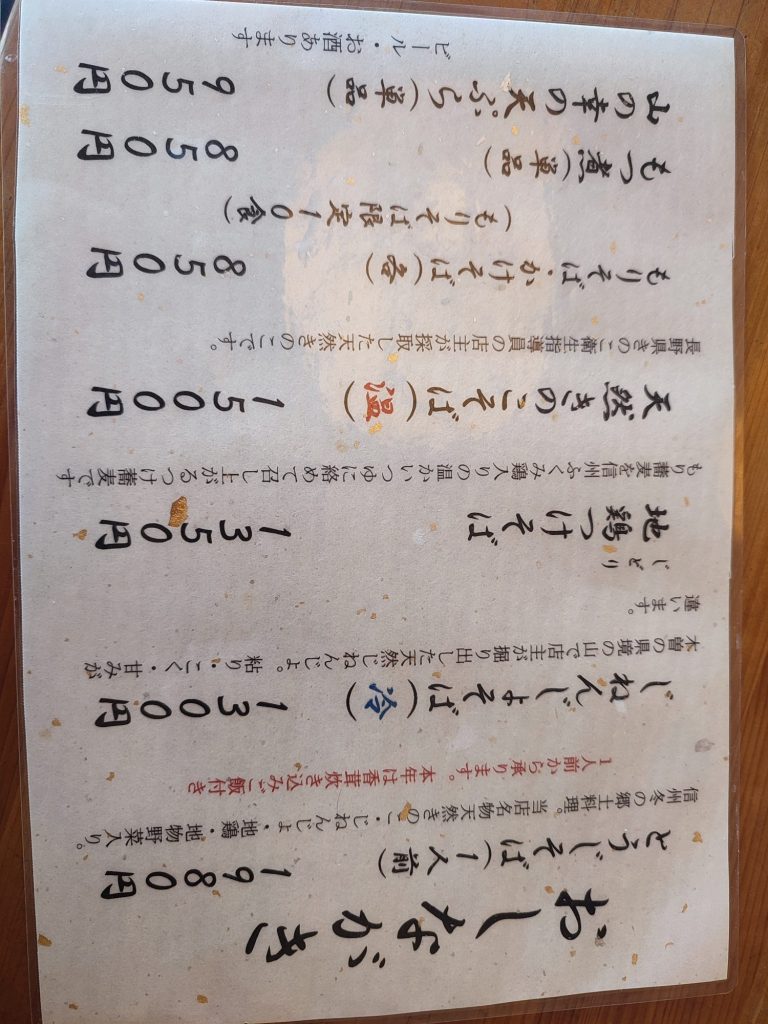 おしながき
とうじそば(1人前)
1980円
信州冬の郷土料理。当店名物天然きのこ・じねんじょ・地鶏・地物野菜入り。
1人前から承ります。本年は香茸炊き込みご飯付き
じねんじょそば(冷)
1300円
木曽の県境の山で店主が掘り出した天然じねんじょ。粘り・こく・甘みが
違います。
じどり
地鶏つけそば
1350円
もり蕎麦を信州ふくみ鶏入りの温かいつゆに絡めて召し上がるつけ蕎麦です
天然きのこそば(温)
1500円
長野県きのこ衛生指導員の店主が採取した天然きのこです。
もりそば・かけそば(各)
850円
(もりそば限定10食)
もつ煮(単品)
850円
山の幸の天ぷら(単品)
950円
ビール・お酒あります